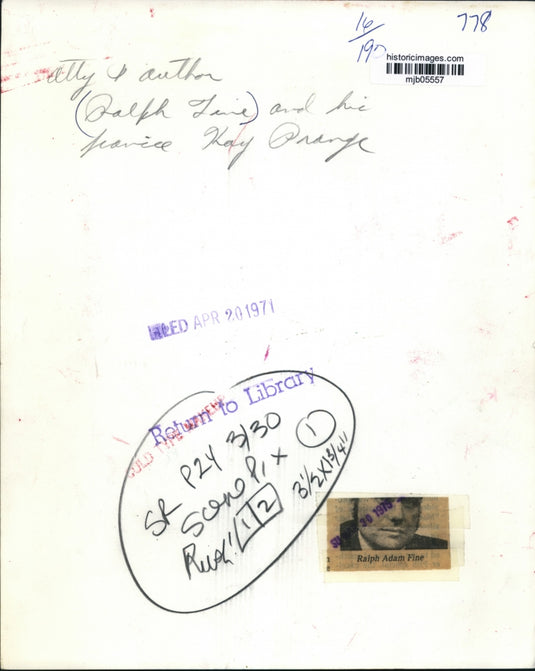 16
190
778
historicimages.com
mjb05557
atty & author
(Ralph Fine) and his
fiancee Kay Prange
FILED APR 20 1971
Return to Library
SR P24 3/30
Scene Pix
Rush! 1 2
1
3 1/2 X 1 3/4"
20 1975
Ralph Adam Fine